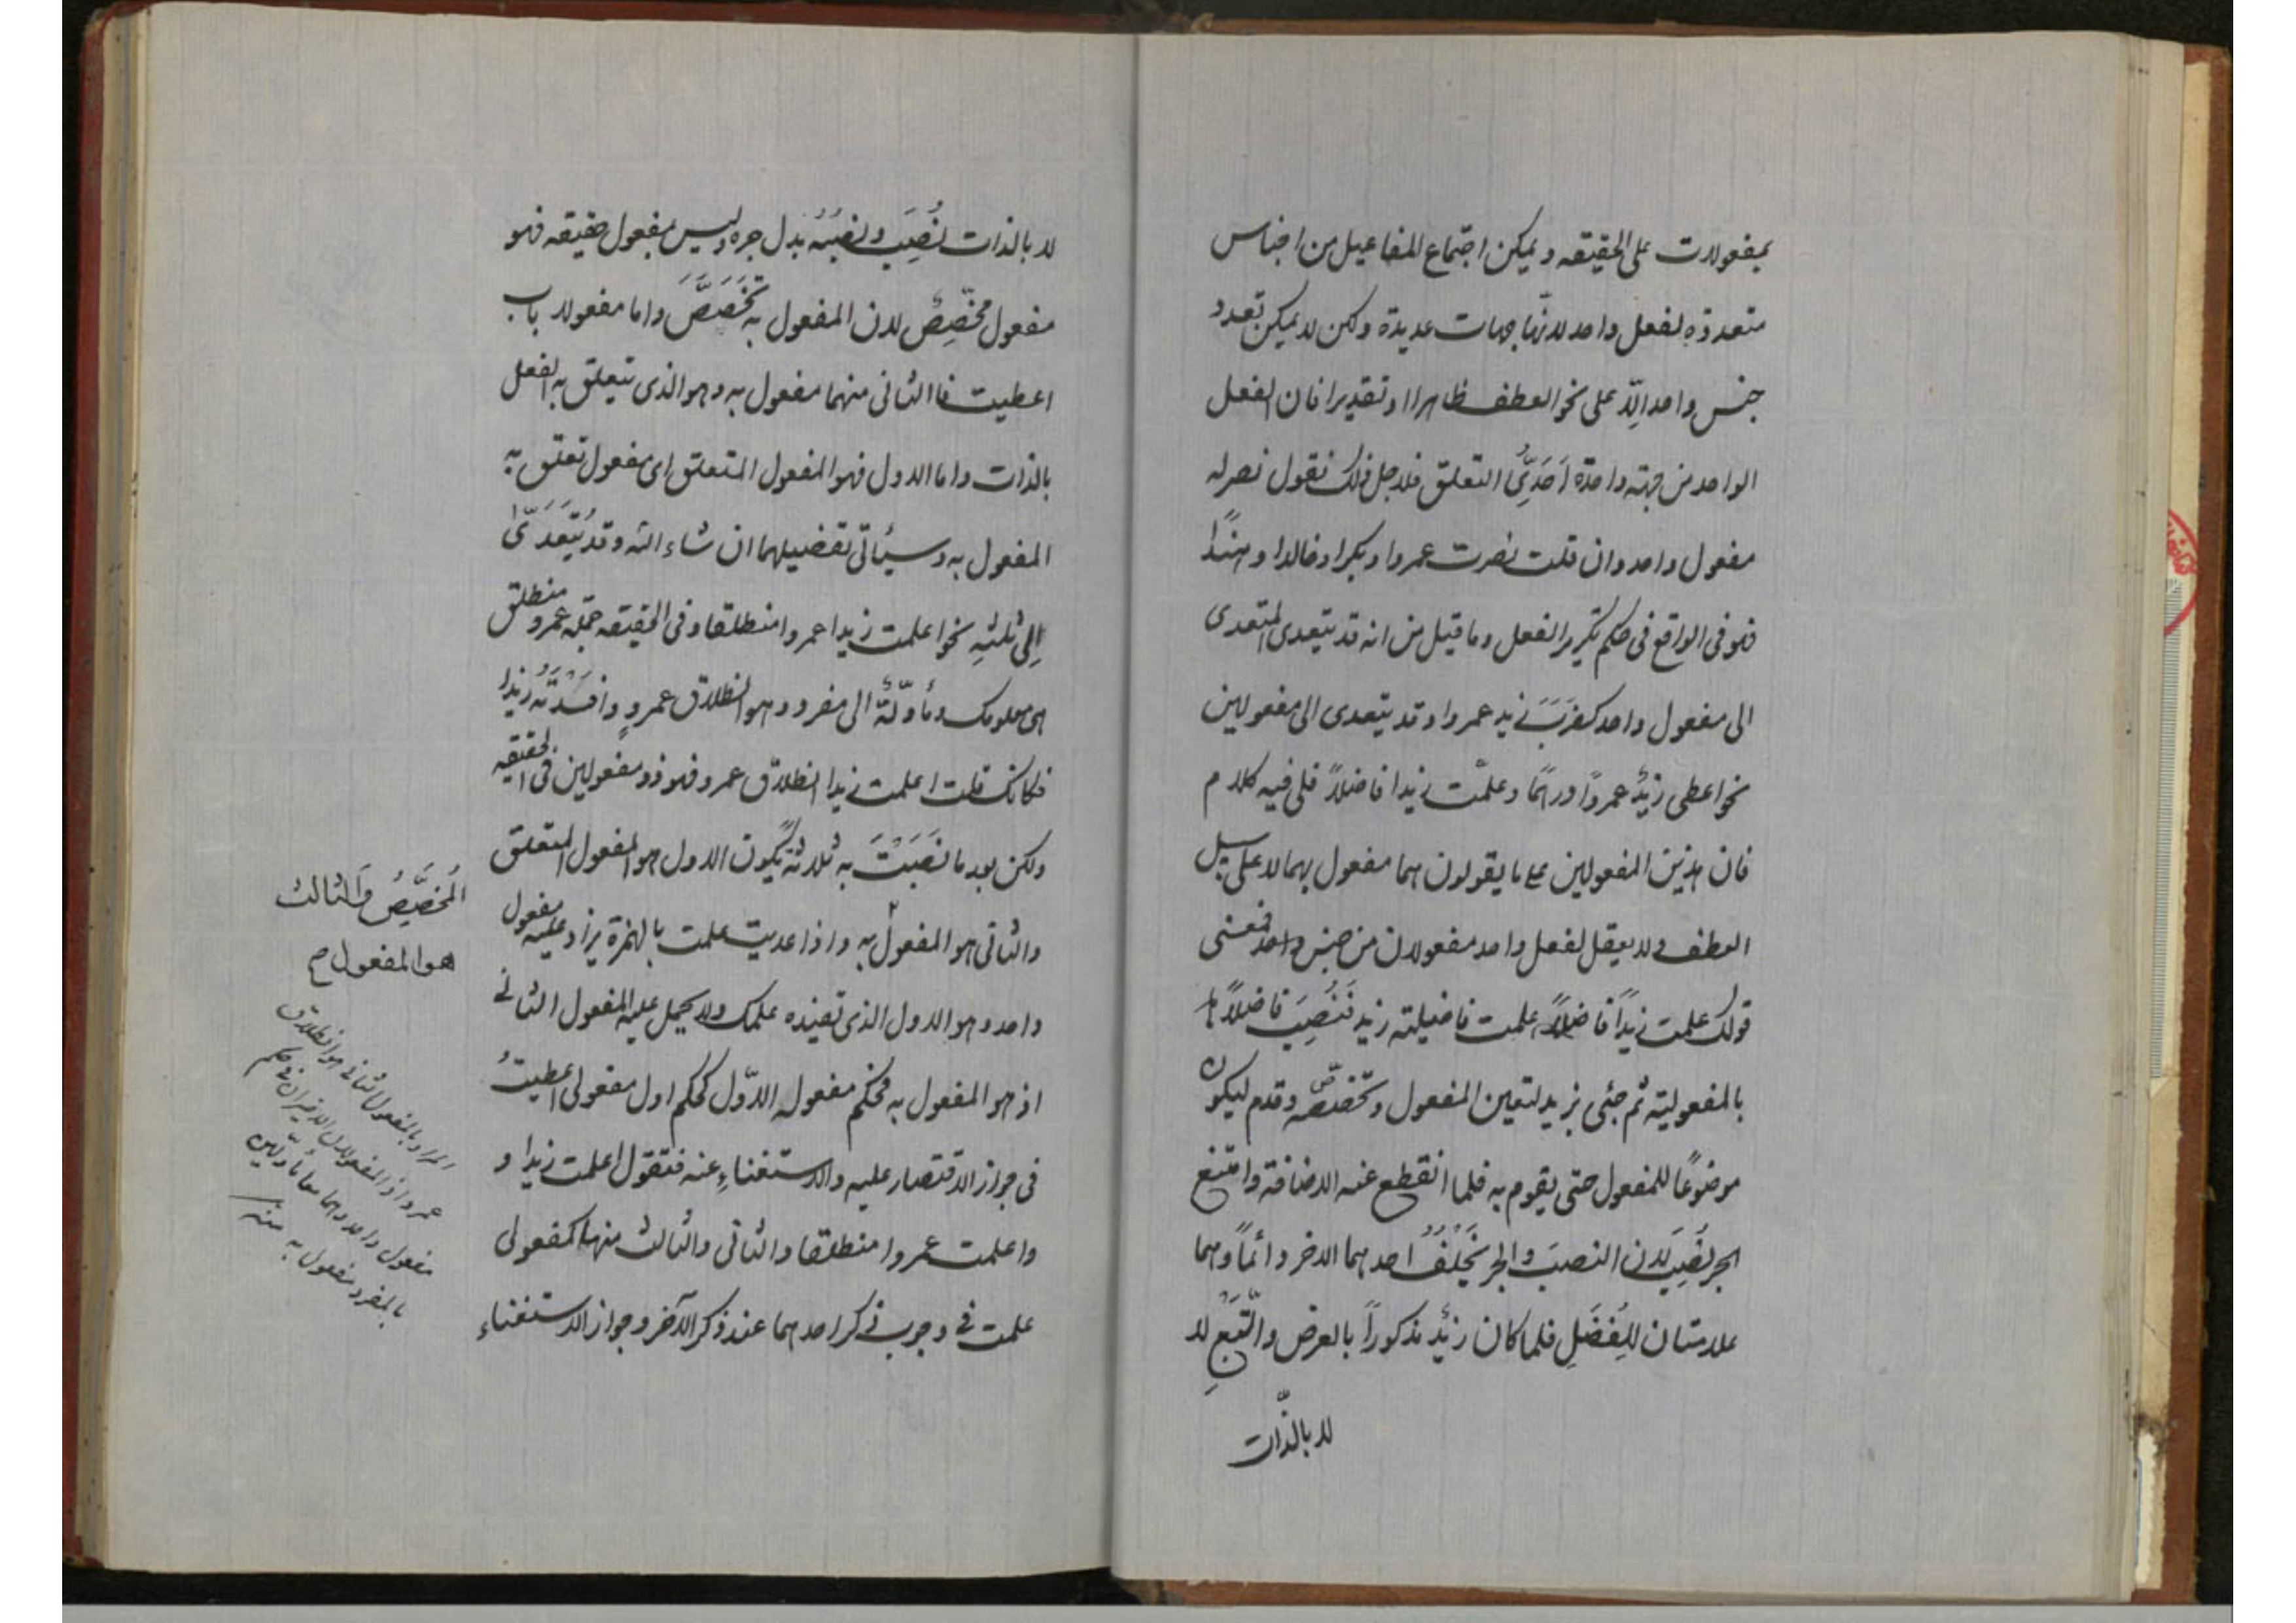 بمفعولات على الحقيقه و يمكن اجتماع المفاعيل من اجناس
متعددة لفعل واحد لانّها جهات عديدة ولكن لا يمكن تعدد
جنس واحد الّا على نحو العطف ظاهرا او تقديرا فان الفعل
الواحد من جهة واحدة اَحَدِىُّ التعلق فلاجل ذلك نقول نصر له
مفعول واحد وان قلت نصرت عمروا و بكرا و خالدا و هنداً
فهو فى الواقع فى حكم تكرير الفعل وما قيل من انه قد يتعدى المتعدى
الى مفعول واحد كضَرَبَ زيد عمروا و قد يتعدى الى مفعولين
نحو اعطى زيدٌ عمرواً درهمًا و علمت زيدا فاضلاً فلى فيه كلام
فان هذين المفعولين على ما يقولون هما مفعول بهما لا على سبيل
العطف و لا يعقل لفعل واحد مفعولان من جنس واحد فمعنى
قولك علمت زيداً فاضلاً علمت فاضلية زيد فَنُصِبَ فاضلاً
بالمفعولية ثم جئى بزيد لتعين المفعول و تخصّصه و قدم ليكون
موضوعًا للمفعول حتى يقوم به فلما انقطع عنه الاضافة وامتنع
الجر نُصِبَ لان النصبَ و الجر يَخْلُفُ احدهما الاخر دائماً و هما
علامتان للفَضَلِ فلما كان زيدٌ مذكوراً بالعرض والتَّبَعِ لا
لا بالذّات
لا بالذات نُصِبَ و نصبُهُ بدل جره و ليس بمفعول حقيقه فهو
مفعول مخصِّصٌ لان المفعول به تَخَصَّصَ واما مفعولا باب
اعطيت فالثانى منهما مفعول به و هو الذى تتعلق به الفعل
بالذات واما الاول فهو المفعول المتعلق اى مفعول تعلق به
المفعول به و سيأتى تفصيلهما ان شاء الله و قد يُتَعَدّىٰ
اِلى ثلثهِ نحو اعلمت زيدا عمروا منطلقا و فى الحقيقه جمله عمرو منطلق
هى معلومك و مأوّلةٌ الى مفرد و هو انطلاق عمروٍ و افَدْتَهُ زيدا
فكانك قلت اعلمت زيدا انطلاق عمرو فهو ذو مفعولين فى الحقيقه
ولكن بعد ما نَصَبْتَ به ثلاثةً يكون الاول هو المفعول المتعلق
والثانى هو المفعول به و اذا عديت علمت بالهمزة يزاد عليه مفعول
واحد و هو الاول الذى تفيده علمك و لا يحمل عليه المفعول الثانى
اذ هو المفعول به فحكم مفعوله الاوّل كحكم اول مفعولى اعطيتُ
فى جواز الاقتصار عليه والاستغناءِ عنه فتقول اعلمت زيدا و
و اعلمت عمروا منطلقا والثانى والثالث منها كمفعولى
علمت فى وجوب ذكر احدهما عند ذكر الآخر و جواز الاستغناء
اَلمُخَصَّصُ وَالثالث
هو المفعول صح
المراد بالمفعول الثانى هو انطلاق
عمرو اذ المفعولان الاخيران فى حكم
مفعول واحد و هما معا مأوّلين
بالمفرد مفعول به منه